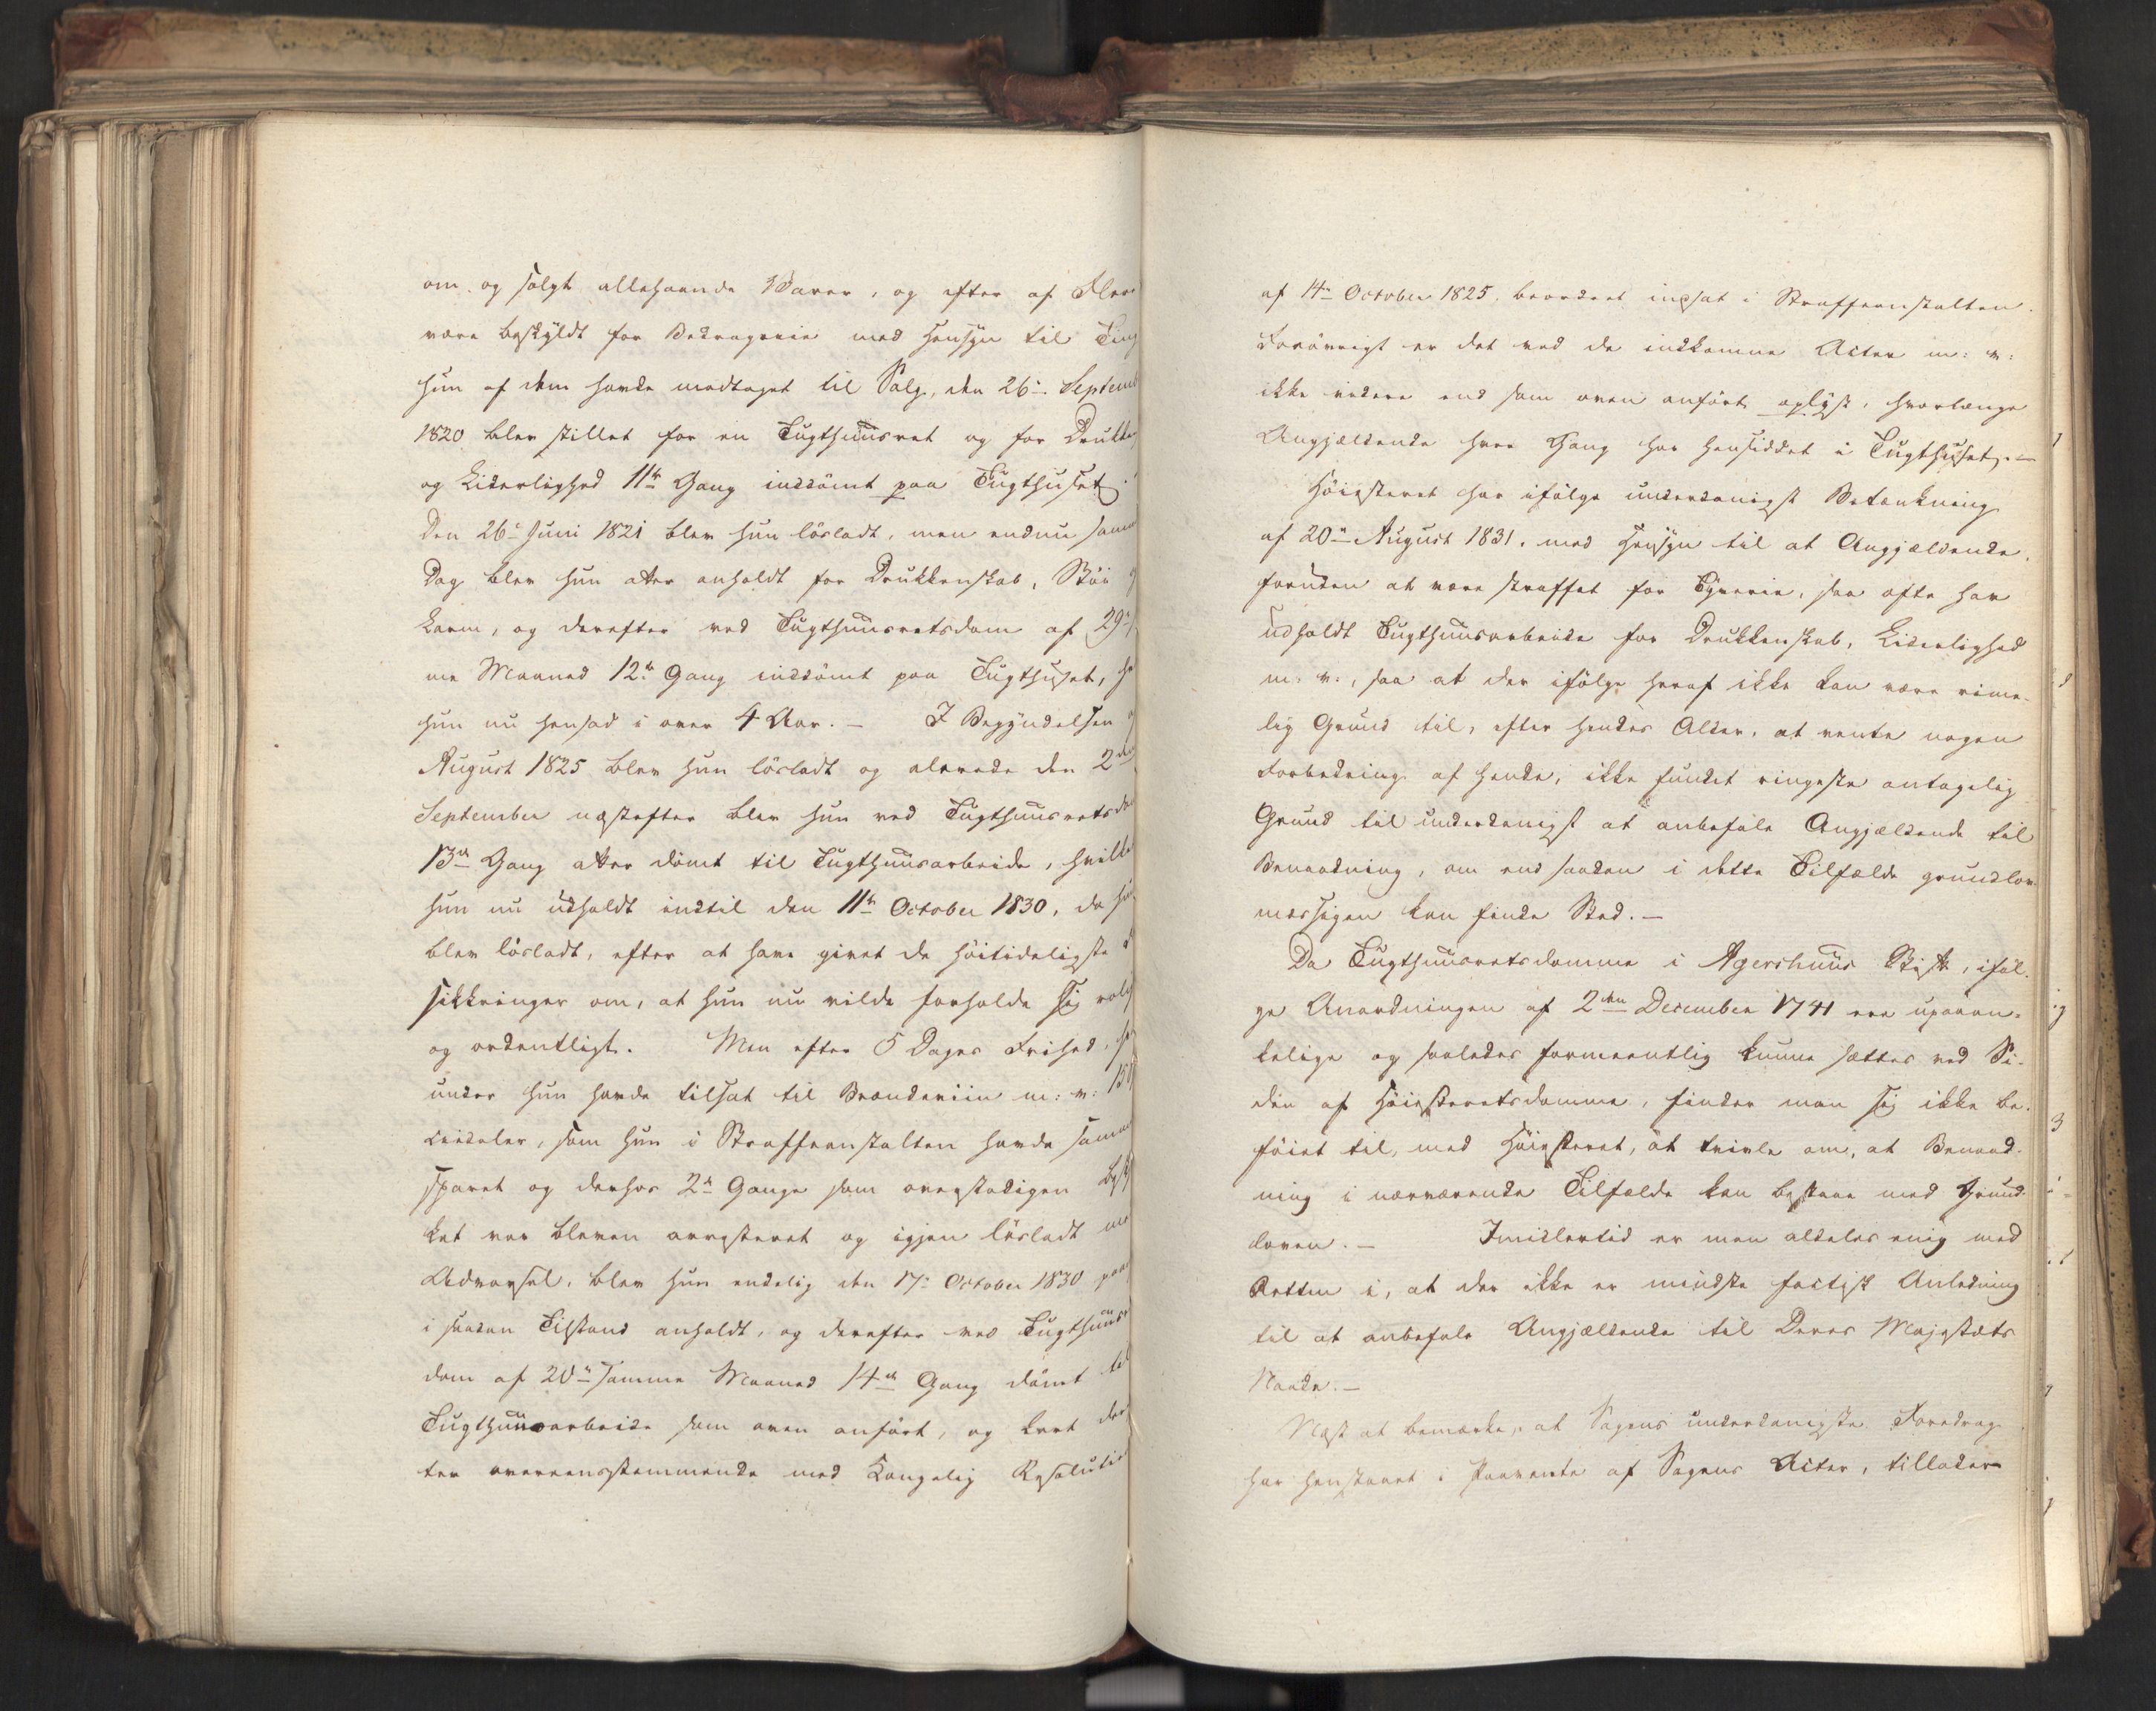 om og solgt allehaande Varer, og efter af Flere
være beskyldt for Bedragerie med Hensyn til Ting
hun af dem havde modtaget til Salg, den 26de Septemb
1820 blev stillet for en Tugthuusret og for Drukken
og Liderlighed 11te Gang inddömt paa Tugthuset.
Den 26de Juni 1821 blev hun lösladt, men endnu samme
Dag blev hun atter anholdt for Drukkenskab, Stöi og
Larm, og derefter ved Tugthuusretsdom af 29de
me Maaned 12te Gang inddömt paa Tugthuset, hv
hun nu hensad i over 4 Aar. – I Begyndelsen af
August 1825 blev hun lösladt og allerede den 2den
September næstefter blev hun ved Tugthuusretsdom
13de Gang atter dömt til Tugthuusarbeide, hvilket
hun nu udholdt indtil den 11te October 1830, da hun
blev lösladt, efter at have givet de höitideligste For
sikkringer om, at hun nu vilde forholde sig rolig
og ordentligt. Men efter 5 Dages Frihed, hv
under hun havde tilsat til Brændeviin m: v: 15
Rigsdaler, som hun i Straffeanstalten havde sammen
sparet og derhos 2de Gange som overstadigen besk
ket var bleven arresteret og igjen lösladt med
Advarsel, blev hun endelig den 17de October 1830 paa
i saadan Tilstand anholdt, og derefter ved Tugthuusrets
dom af 20de samme Maaned 14de Gang dömt til
Tugthuusarbeide som oven anfört, og learet der
ter overeensstemmende med Kongelig Resolution
af 14de October 1825 beordret indsat i Straffeanstalten.
Forövrigt er det ved de indkomne Acter m: v:
ikke videre end som oven anfört oplyst, hvorlænge
Angjældende hver Gang har hensiddet i Tugthuset. –
Höiesteret har ifölge underdanigst Betænkning
af 20de August 1831, med Hensyn til at Angjældende,
foruden at være straffet for Tyverie, saa ofte har
udholdt Tugthuusarbeide for Drukkenskab, Liderlighed
m: v:, saa at der ifölge heraf ikke kan være rime-
lig Grund til, efter hendes Alder, at vente nogen
Forbedring af hende, ikke fundet ringeste antagelig
Grund til underdanigst at anbefale Angjældende til
Benaadning, om end saadan i dette Tilfælde grundlov-
mæssigen kan finde Sted. –
Da Tugthuusretsdomme i Agershuus Stift, iföl-
ge Anordningen af 2den December 1741 ere upaaan-
kelige og saaledes formeentlig kunne sættes ved Si-
den af Höiesteretsdomme, finder man sig ikke be-
föiet til, med Höiesteret, at tvivle om, at Benaad-
ning i nærværende Tilfælde kan bestaae med Grund-
loven. – Imidlertid er man aldeles enig med
Retten i, at der ikke er mindste factisk Anledning
til at anbefale Angjældende til Deres Majestæts
Naade. –
Næst at bemærke, at Sagens underdanigste Foredrag
har henstaaet i Paavente af Sagens Acter, tillader